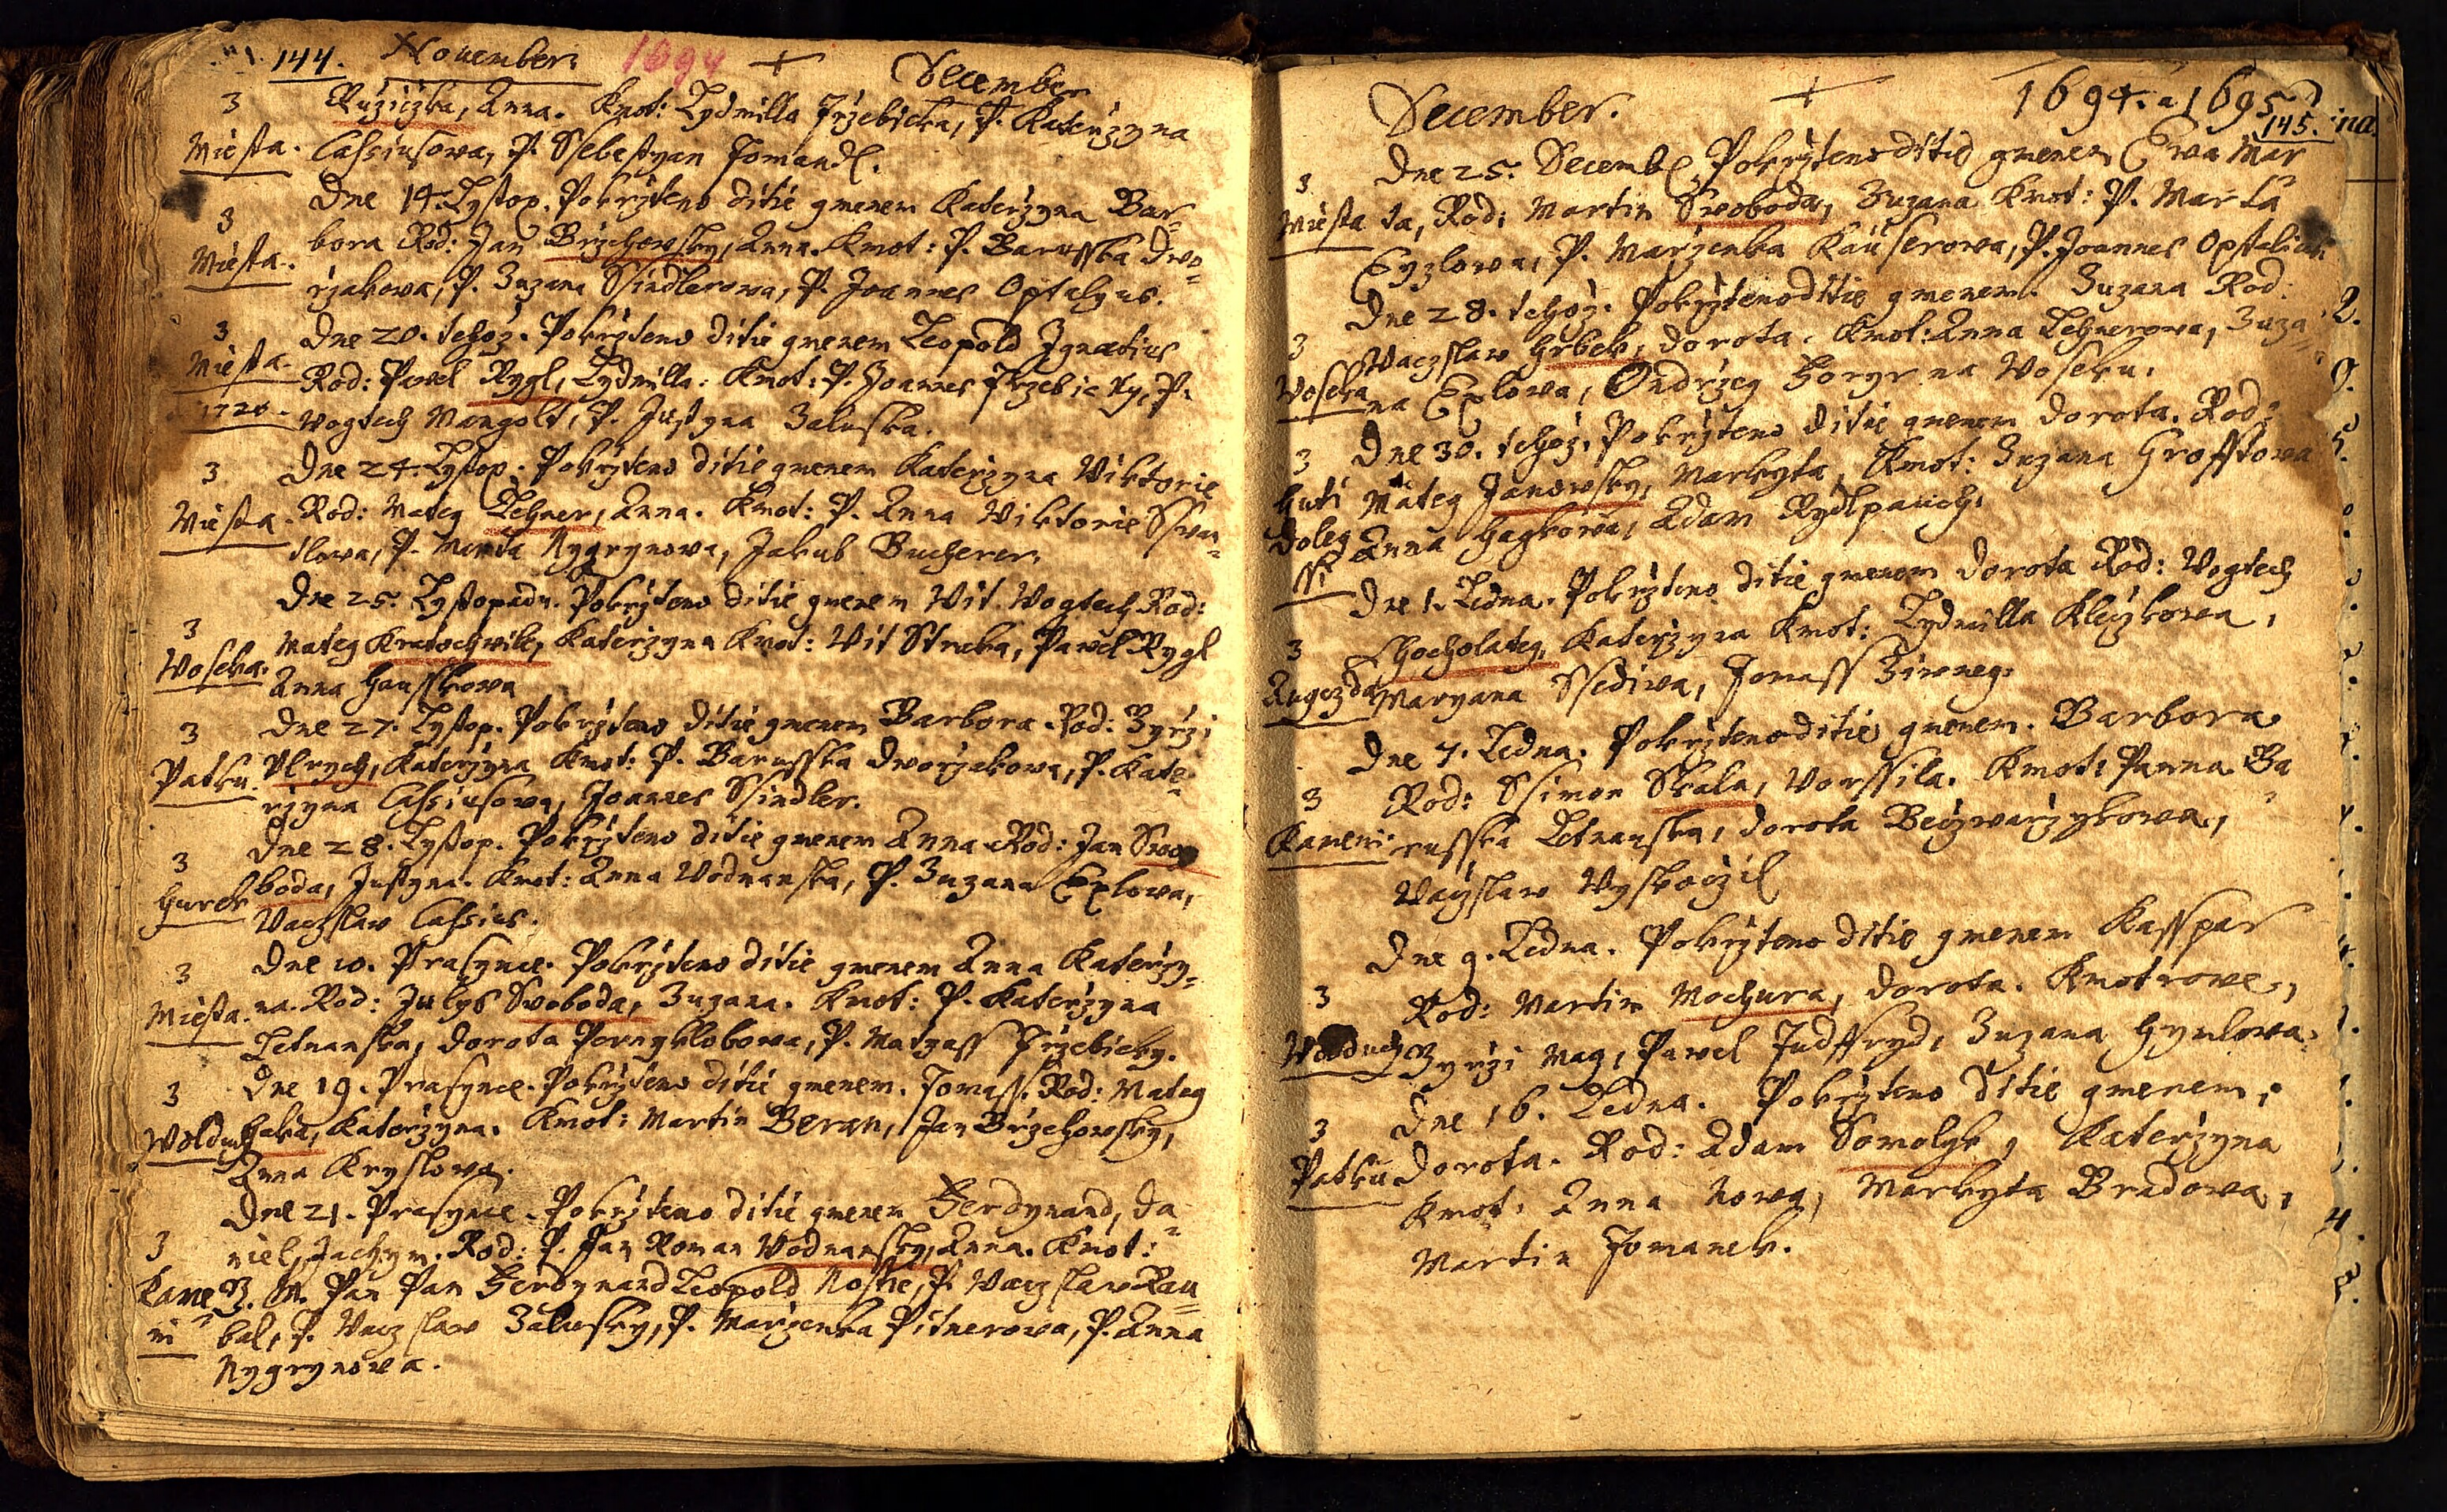 144. November. 1694 + December
3 Ružiczka, Anna. Kmot: Lydmilla Trzebicka, P. Katerzyna
Miesta. Cassiusowa, P. Ssebestyan Tomandl.
Dne 14. Lystop. Pokrzteno ditie gmenem Katerzyna Bar-
3 bora Rod: Jan Brzechowsky, Anna. Kmot: P. Barusska Dwo-
Miesta. rzakowa, P. Zuzana Ssindlerowa, P. Joannes Optalyus.
3 Dne 20. tehoz. Pokrzteno ditie gmenem Leopold Ignatius
Miesta. Rod: Pawel Rygl, Lydmilla. Kmot: P. Joannes Trzebicky, P.
1720. Wogtech Mangolt, P. Justyna Zaluska.
3 Dne 24. Lystop. Pokrzteno ditie gmenem Katerzyna Viktorie
Miesta. Rod: Mateg Lehner, Anna. Kmot: P. Anna Viktorie Sswan-
tlowa, P. Nygrynowa, Jakub Bucherer.
Dne 25. Lystopadu. Pokrzteno ditie gmenem Wit. Wogtech Rod:
3 Mateg Kratochwile, Katerzyna Kmot: Wit Straka, Pawel Rygl
Woseka. Anna Hausskowa
3 Dne 27. Lystop. Pokrzteno ditie gmenem Barbora. Rod: Gyrzi
Patku. Vlrych, Katerzyna Kmot: P. Barusska Dworzakowa, P. Kate-
rzyna Cassiusowa, Joannes Ssindler.
3 Dne 28. Lystop. Pokrzteno ditie gmenem Anna. Rod: Jan Swo-
Hurek boda, Justyna. Kmot: Anna Vodnanska, P. Zuzana Exlowa,
Waczslaw Cassius.
3 Dne 10. Prasynce. Pokrzteno ditie gmenem Anna Katerzy-
Miesta. na. Rod: Julys Swoboda, Zuzana. Kmot: P. Katerzyna
Letnanska, Dorota Pernyklobowa, P. Matyass Trzebicky.
3 Dne 19. Prasynce. Pokrzteno ditie gmenem. Tomass. Rod: Mateg
Wolduch Haka, Katerzyna. Kmot: Martin Beran, Jan Brzechowsky,
Anna Kryslowa.
Dne 21. Prasynce. Pokrzteno ditie gmenem Ferdynand, Da-
3 niel, Jachym. Rod: P. Jan Roman Vodnansky, Anna. Kmot:
Kame- G. M. Pan Pan Ferdynand Leopold Nostic, P. Waczslaw Rau-
ni bal, P. Waczslaw Zalusky, P. Marzenka Pitnerowa, P. Anna
Nygrynowa.
December. + 1694. a 1695
145.
Dne 25. Decemb. Pokrzteno ditie gmenem Ewa Mar
3
Miesta ta, Rod: Martin Swoboda, Zuzana Kmot: P. Marta
Cyzlowa, P. Marzenka Kauserowa, P. Joannes Optalius
Dne 28. tehoz. Pokrzteno ditie gmenem. Zuzana Rod:
3 Waczslaw Hrbek, Dorota. Kmot: Anna Lehnerowa, Zuza-
Woseka na Exlowa, Ondrzeg Foryr na Woseku.
3 Dne 30. tehoz. Pokrzteno ditie gmenem Dorota. Rod:
Huti Mateg Janowsky, Markyta, Kmot: Zuzana Grosstowa
Doleg Anna Hagkowa, Adam Rydlpauch.
ssi Dne 1. Ledna. Pokrzteno ditie gmenem Dorota Rod: Wogtech
3 Chocholateg, Katerzyna Kmot: Lydmilla Kleczkowa,
Augezda Maryana Ssediwa, Tomass Ziwneg.
Dne 7. Ledna. Pokrzteno ditie gmenem. Barbora
3 Rod: Ssimon Skala, Worssila. Kmot: Panna Ba
Kameni russka Letnanska, Dorota Beczwarzykowa,
Waczslaw Wyskoczil
Dne 9. Ledna. Pokrzteno ditie gmenem Kasspar
3 Rod: Martin Mochura, Dorota. Kmotrowe,
Wolduch Gyrzi Mag, Pawel Judffryd, Zuzana Hynlowa.
3 Dne 16. Ledna. Pokrzteno ditie gmenem,
Patku Dorota. Rod: Adam Somolyk, Katerzyna
Kmot: Anna Nowa, Markyta Bradowa,
Martin Tomanek.